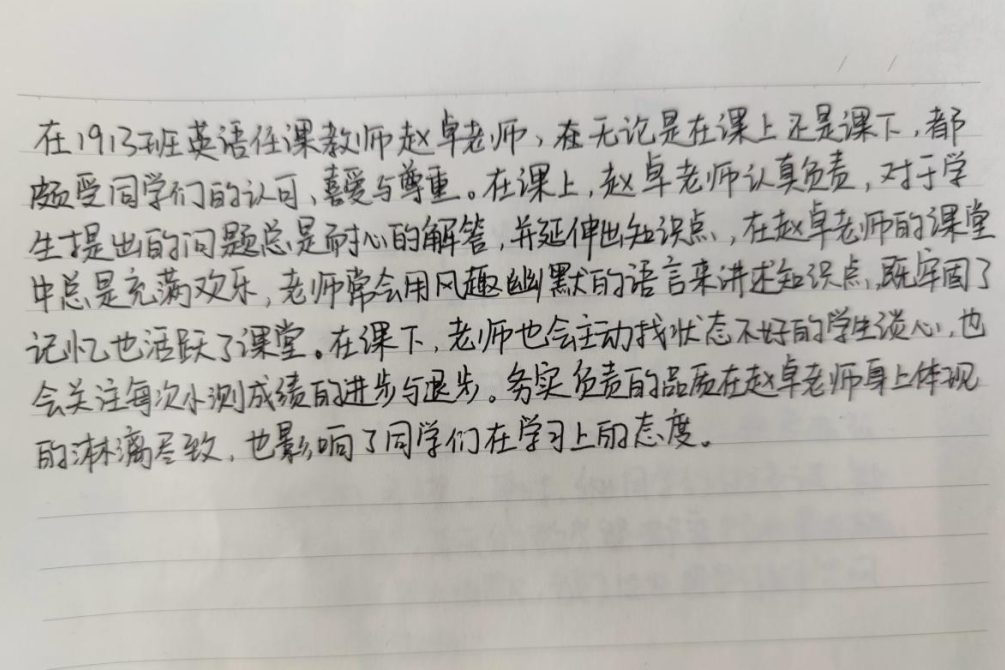 在1913班英语任课教师赵卓老师，在无论是在课上还是课下，都
颇受同学们的认可、喜爱与尊重。在课上，赵卓老师认真负责，对于学
生提出的问题总是耐心的解答，并延伸出知识点，在赵卓老师的课堂
中总是充满欢乐，老师常会用风趣幽默的语言来讲述知识点，既牢固了
记忆也活跃了课堂。在课下，老师也会主动找状态不好的学生谈心，也
会关注每次小测成绩的进步与退步。务实负责的品质在赵卓老师身上体现
的淋漓尽致，也影响了同学们在学习上的态度。